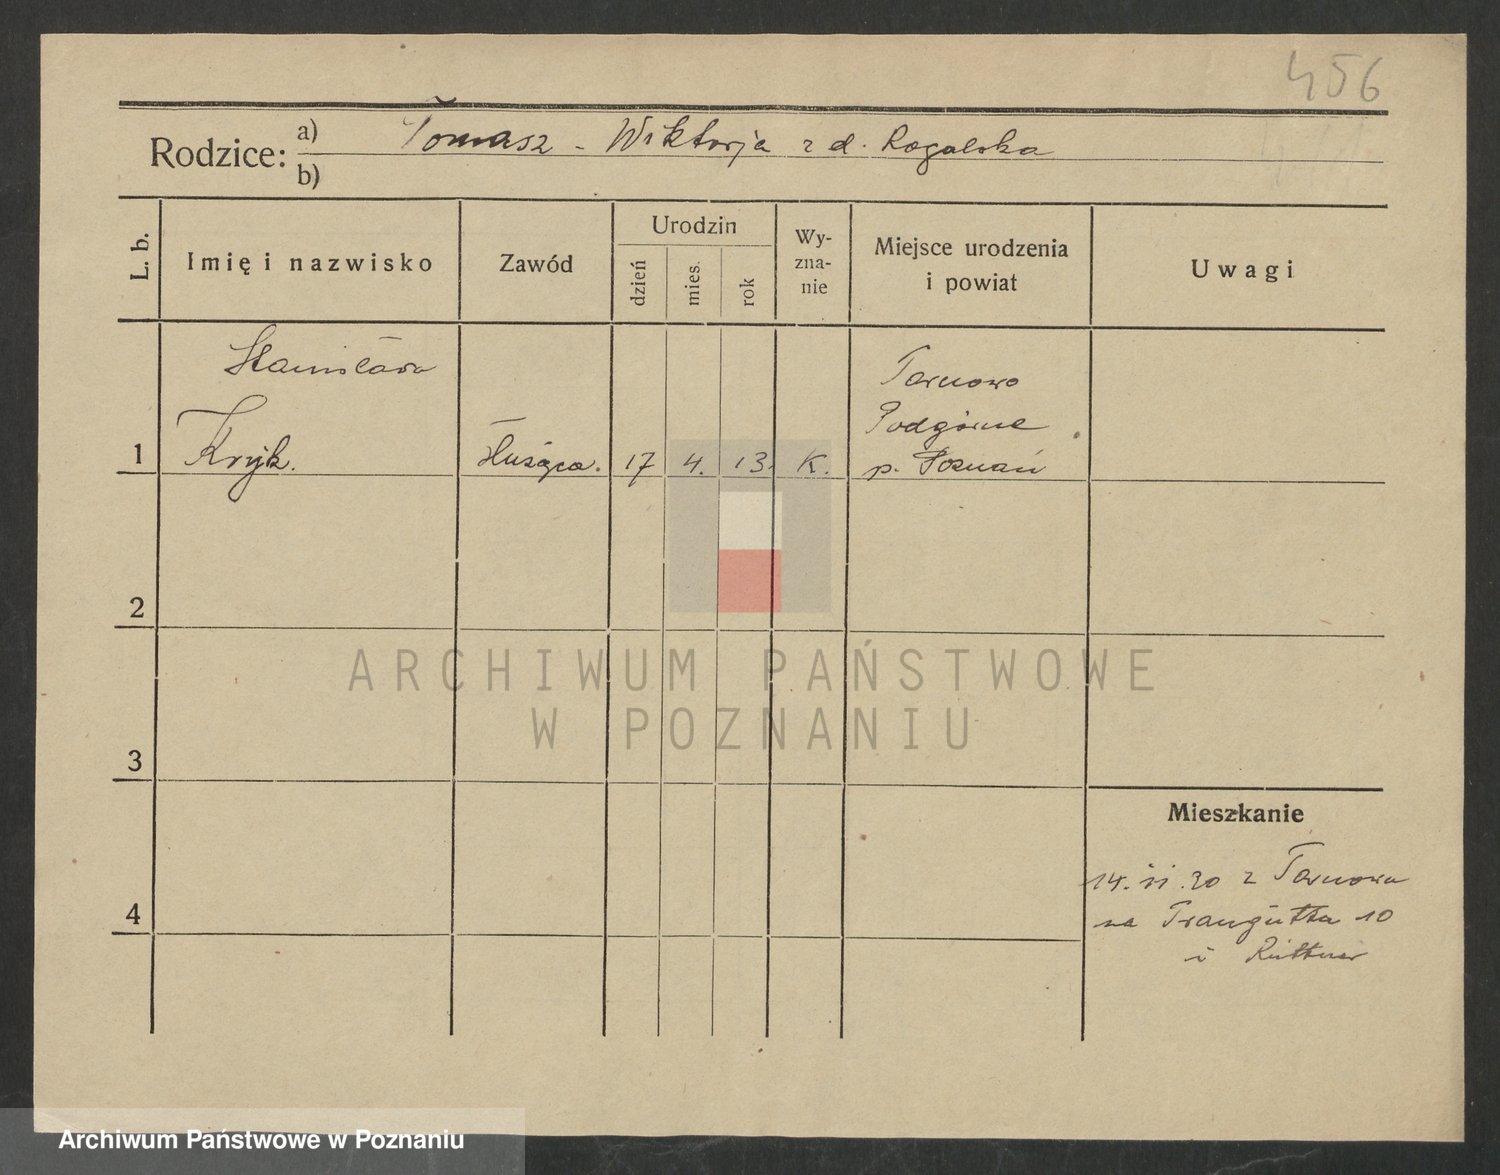 456
Rodzice: a) Tomasz - Wiktorja z d. Rogalska
b)
L. b.
Imię i nazwisko
Zawód
Urodzin
dzień
mies.
rok
Wy-
zna-
nie
Miejsce urodzenia
i powiat
Uwagi
Stanisława
Kryk.
Tarnowo
Podgórne
1
służąca.
17
4.
13.
K.
p. Poznań
2
3
4
Mieszkanie
z Tarnowa
na Traugutta 10
ARCHIWUM PAŃSTWOWE
W POZNANIU
Archiwum Państwowe w Poznaniu